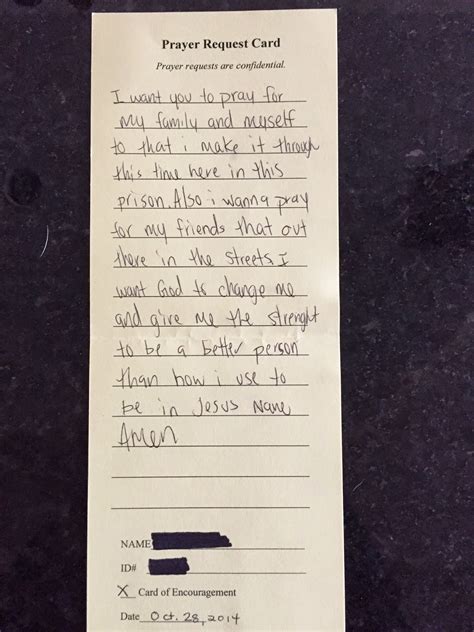 Prayer Request Card
Prayer requests are confidential.
I want you to pray for
my family and myself
to that i make it through
this time here in this
prison. Also i wanna pray
for my friends that out
there in the streets I
want God to change me
and give me the strenght
to be a better person
than how i use to
be in Jesus Name
Amen
NAME
ID#
X Card of Encouragement
Date Oct. 28, 2014